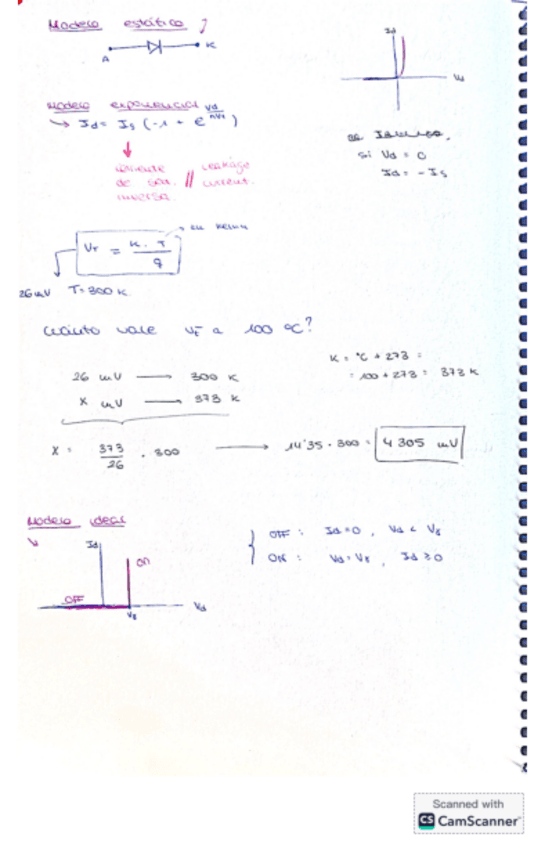 Modelo estático
A K
Id
Vd
Modelo exponencial
Id = Is (-1 + e^(Vd/nVt))
si Vd = 0
Id = - Is
corriente // leakage
de sat. current.
inversa
en kelvin
VT = K. T / q
26 mV T= 300 K.
cuánto vale VT a 100 ºC?
K = ºC + 273 =
= 100 + 273 = 373 K
26 mV → 300 K
X mV → 373 K
X = 373/26 . 300 → 14'35 . 300 = 4 305 mV
Modelo ideal
Id
ON
OFF
Vγ
Vd
OFF : Id=0 , Vd < Vγ
ON : Vd = Vγ , Id ≥ 0
Scanned with
CS CamScanner